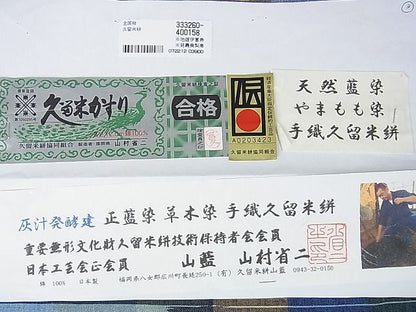 全国発
久留米絣
333260-
400158
072212 03900
久留米かすり
合格
綿100%
久留米絣協同組合
山村省二
伝
A0203423
久留米絣協同組合
天然藍染
やまもも染
手織久留米絣
灰汁発酵建 正藍染 草木染 手織久留米絣
重要無形文化財久留米絣技術保持者会会員
日本工芸会正会員 山藍 山村省二
綿 100% 日本製 福岡県八女郡広川町長延250-1 (有) 久留米絣山藍 0943-32-0150